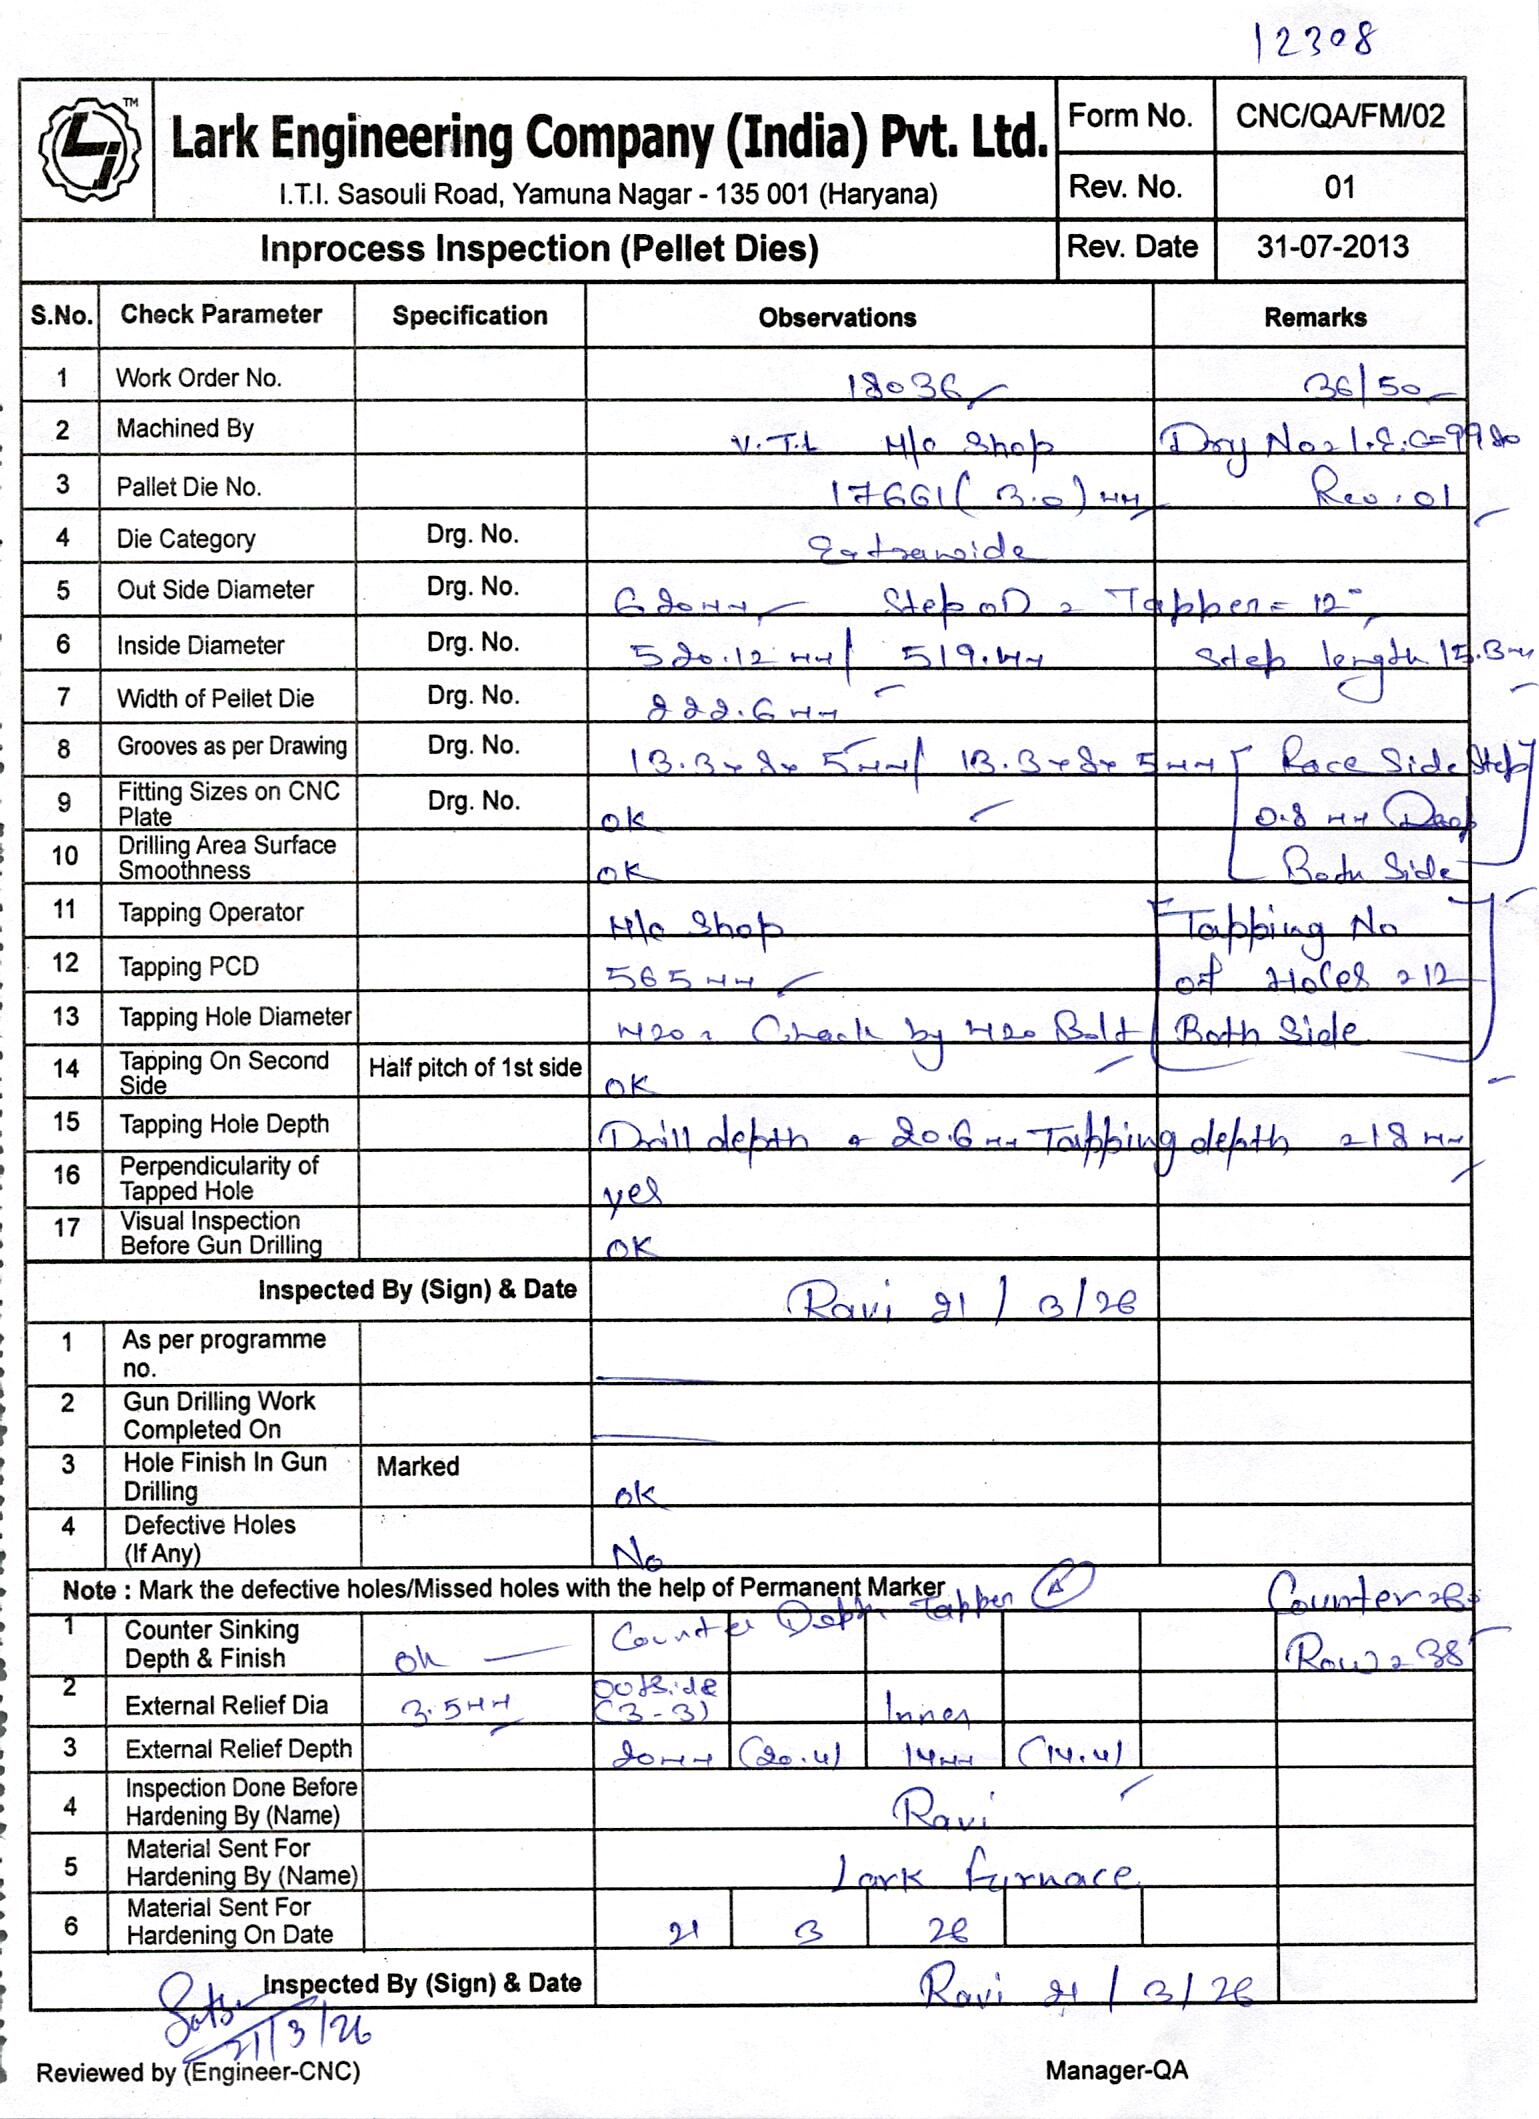 12308
TM
Lark Engineering Company (India) Pvt. Ltd.
I.T.I. Sasouli Road, Yamuna Nagar - 135 001 (Haryana)
Form No. CNC/QA/FM/02
Rev. No. 01
Inprocess Inspection (Pellet Dies) Rev. Date 31-07-2013
S.No. Check Parameter Specification Observations Remarks
1 Work Order No. 18036 36/50
2 Machined By V.T.L M/c Shop Drg No = L.E.C=9920
3 Pallet Die No. 17661 (3.0) mm Rev: 01
4 Die Category Drg. No. Extrawide
5 Out Side Diameter Drg. No. 620mm Step OD = Tapper = 12°
6 Inside Diameter Drg. No. 520.12 mm / 519.mm Step length 15.3mm
7 Width of Pellet Die Drg. No. 222.6 mm
8 Grooves as per Drawing Drg. No. 13.3x8x5mm / 13.3x8x5mm [Race Side Step
9 Fitting Sizes on CNC Plate Drg. No. ok 0.8 mm Deep
10 Drilling Area Surface Smoothness ok Both Side]
11 Tapping Operator M/c Shop [Tapping No
12 Tapping PCD 565mm of Holes = 12
13 Tapping Hole Diameter M20 = Check by M20 Bolt Both Side]
14 Tapping On Second Side Half pitch of 1st side OK
15 Tapping Hole Depth Drill depth = 20.6mm Tapping depth = 18mm
16 Perpendicularity of Tapped Hole yes
17 Visual Inspection Before Gun Drilling OK
Inspected By (Sign) & Date Ravi 21/3/26
1 As per programme no.
2 Gun Drilling Work Completed On
3 Hole Finish In Gun Drilling Marked ok
4 Defective Holes (If Any) No
Note : Mark the defective holes/Missed holes with the help of Permanent Marker
Counter Depth Tapper (A) Counter = 60
1 Counter Sinking Depth & Finish ok Row = 38
2 External Relief Dia 3.5mm Outside (3-3) Inner
3 External Relief Depth 20mm (20.4) 14mm (14.4)
4 Inspection Done Before Hardening By (Name) Ravi
5 Material Sent For Hardening By (Name) Lark Furnace
6 Material Sent For Hardening On Date 21 3 26
Inspected By (Sign) & Date Ravi 21/3/26
21/3/26
Reviewed by (Engineer-CNC) Manager-QA